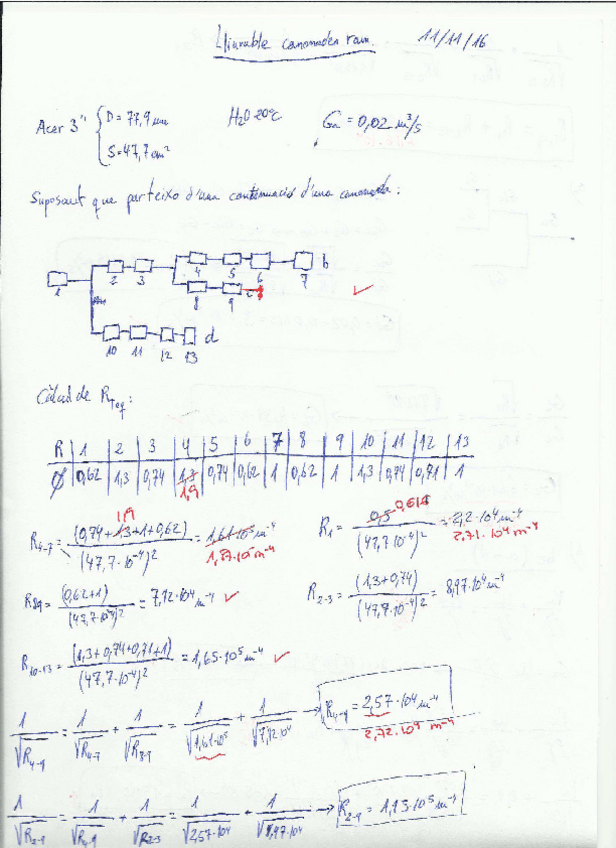 Lliurable canonades ram. 11/11/16
Acer 3" { D = 77,9 mm H₂O 20°C Ga = 0,02 m³/s
S = 47,7 cm²
Suposant que parteixo d'una continuació d'una canonada:
1 2 3 4 5 6 7 b
8 9 c
10 11 12 13 d
Càlcul de R_Teq:
R 1 2 3 4 5 6 7 8 9 10 11 12 13
Ø 0,62 1,3 0,74 1,3 0,74 0,62 1 0,62 1 1,3 0,74 0,71 1
1,9
1,9
R₄₋₇ = (0,74+1,3+1+0,62) / (47,7·10⁻⁴)² = 1,61·10⁵ m⁻⁴
R₁ = 0,5 0,618 / (47,7·10⁻⁴)² = 2,2·10⁴ m⁻⁴
2,71·10⁴ m⁻⁴
R₈₉ = (0,62+1) / (47,7·10⁻⁴)² = 7,12·10⁴ m⁻⁴
R₂₋₃ = (1,3+0,74) / (47,7·10⁻⁴)² = 8,97·10⁴ m⁻⁴
R₁₀₋₁₃ = (1,3+0,74+0,71+1) / (47,7·10⁻⁴)² = 1,65·10⁵ m⁻⁴
1/√R₄₋₉ = 1/√R₄₋₇ + 1/√R₈₋₉ = 1/√1,61·10⁵ + 1/√7,12·10⁴ → R₄₋₉ = 2,57·10⁴ m⁻⁴
2,72·10⁴ m⁻⁴
1/√R₂₋₉ = 1/√R₄₋₉ + 1/√R₂₋₃ = 1/√2,57·10⁴ + 1/√8,97·10⁴ → R₂₋₉ = 1,13·10⁵ m⁻⁴